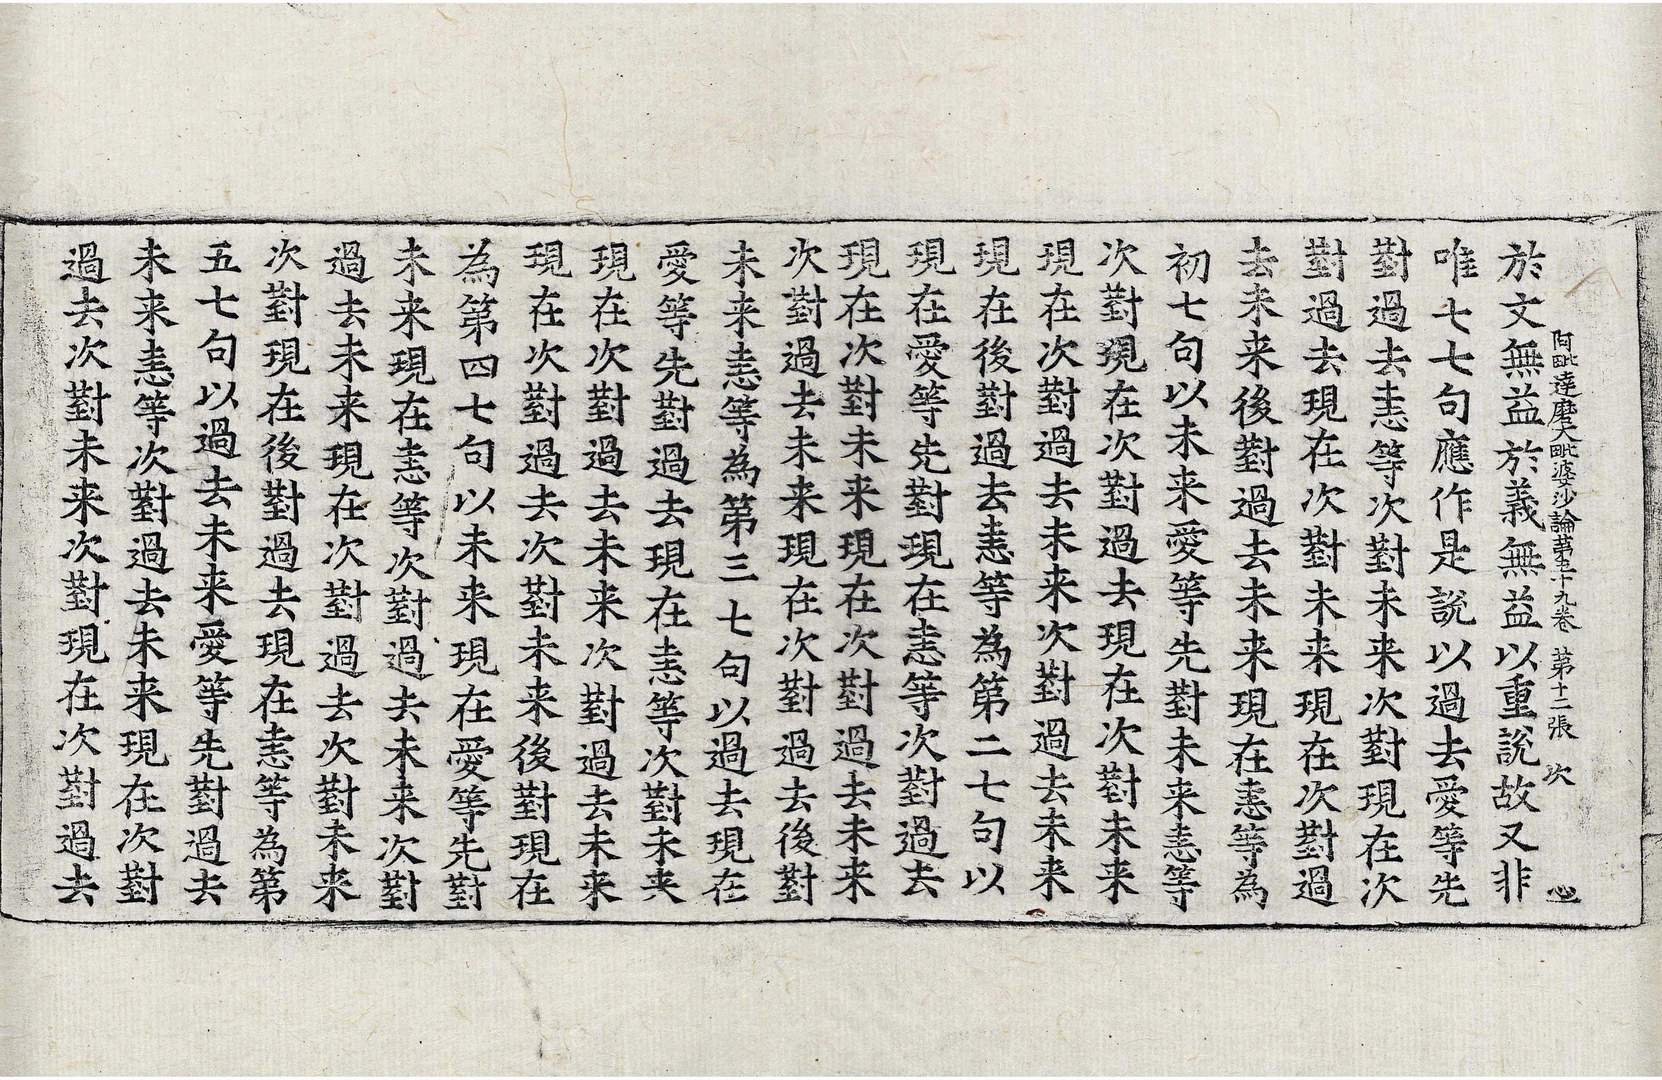 阿毗達磨大毗婆沙論第五十九卷 第十二張 次
於文無益於義無益以重說故又非
唯七七句應作是說以過去愛等先
對過去恚等次對未来次對現在次
對過去現在次對未来現在次對過
去未来後對過去未来現在恚等為
初七句以未来愛等先對未来恚等
次對現在次對過去現在次對未来
現在次對過去未来次對過去未来
現在後對過去恚等為第二七句以
現在愛等先對現在恚等次對過去
現在次對未来現在次對過去未来
次對過去未来現在次對過去後對
未来恚等為第三七句以過去現在
愛等先對過去現在恚等次對未来
現在次對過去未来次對過去未来
現在次對過去次對未来後對現在
為第四七句以未来現在愛等先對
未来現在恚等次對過去未来次對
過去未来現在次對過去次對未来
次對現在後對過去現在恚等為第
五七句以過去未来愛等先對過去
未来恚等次對過去未来現在次對
過去次對未来次對現在次對過去